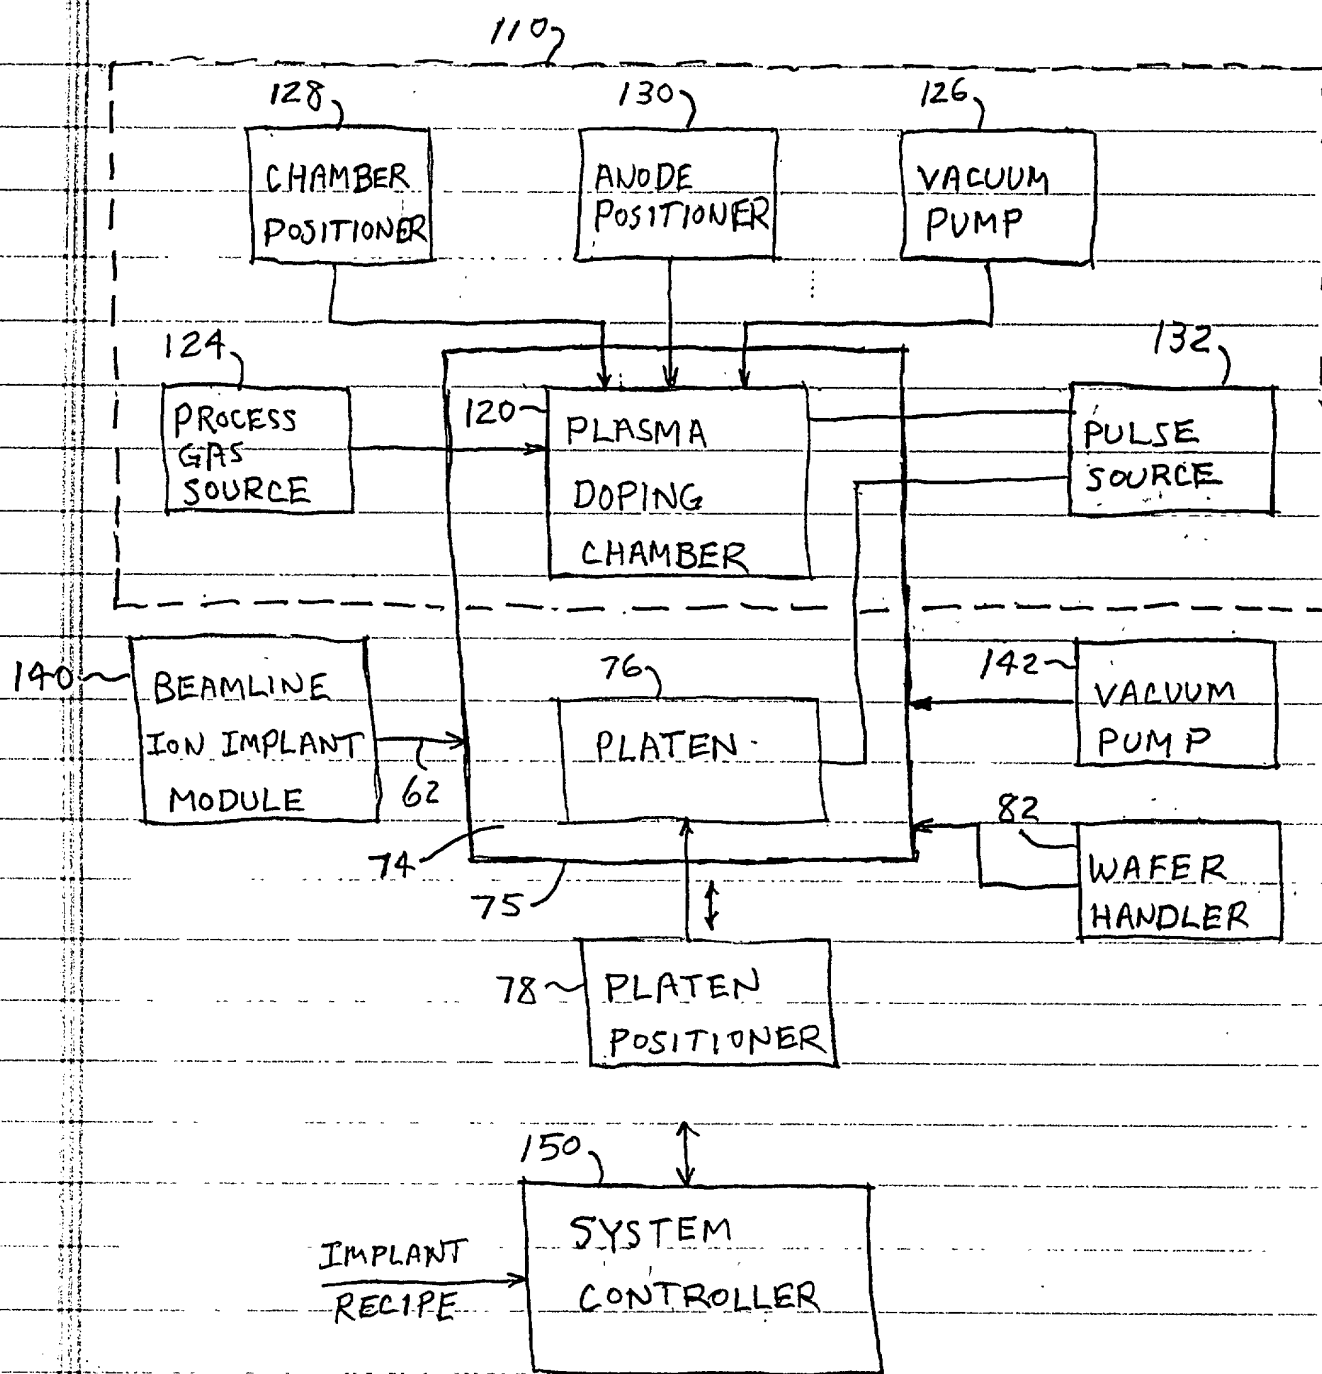 110
128
130
126
CHAMBER
POSITIONER
ANODE
POSITIONER
VACUUM
PUMP
124
132
PROCESS
GAS
SOURCE
120
PLASMA
DOPING
CHAMBER
PULSE
SOURCE
140
BEAMLINE
ION IMPLANT
MODULE
62
76
PLATEN
142
VACUUM
PUMP
74
75
82
WAFER
HANDLER
78
PLATEN
POSITIONER
150
SYSTEM
CONTROLLER
IMPLANT
RECIPE